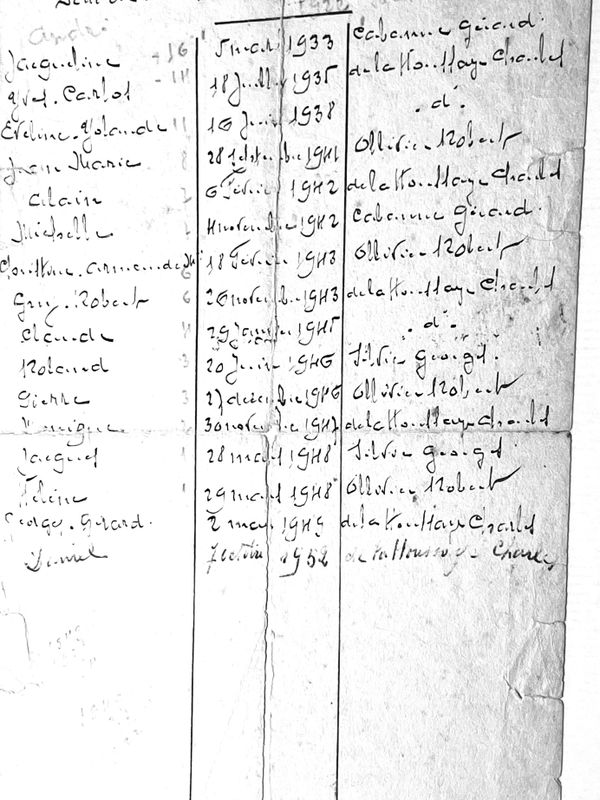 André
Jacqueline 16 5 mars 1933 Cabanne Gérard
Yves. Carlos 14 18 Juillet 1935 de la Houssaye Charles
Eveline. Yolande 11 16 Juin 1938 . d° .
Jean Marie 8 28 1941 Ollivier Robert
Alain 6 Février 1942 de la Houssaye Charles
Michelle 4 novembre 1942 Cabanne Gérard
armande 18 Février 1943 Ollivier Robert
Guy. Robert 6 26 novembre 1943 de la Houssaye Charles
Claude 4 29 Janvier 1945 . d° .
Roland 3 20 Juin 1946 Silvie Georges.
Pierre 3 27 décembre 1946 Ollivier Robert
30 novembre 1947 de la Houssaye Charles
Jacques 1 28 mars 1948 Silvie Georges
Hélène 1 29 mars 1948 Ollivier Robert
Georges. Gérard. 2 mars 1949 de la Houssaye Charles
Daniel 7 octobre 1952 de la Houssaye Charles